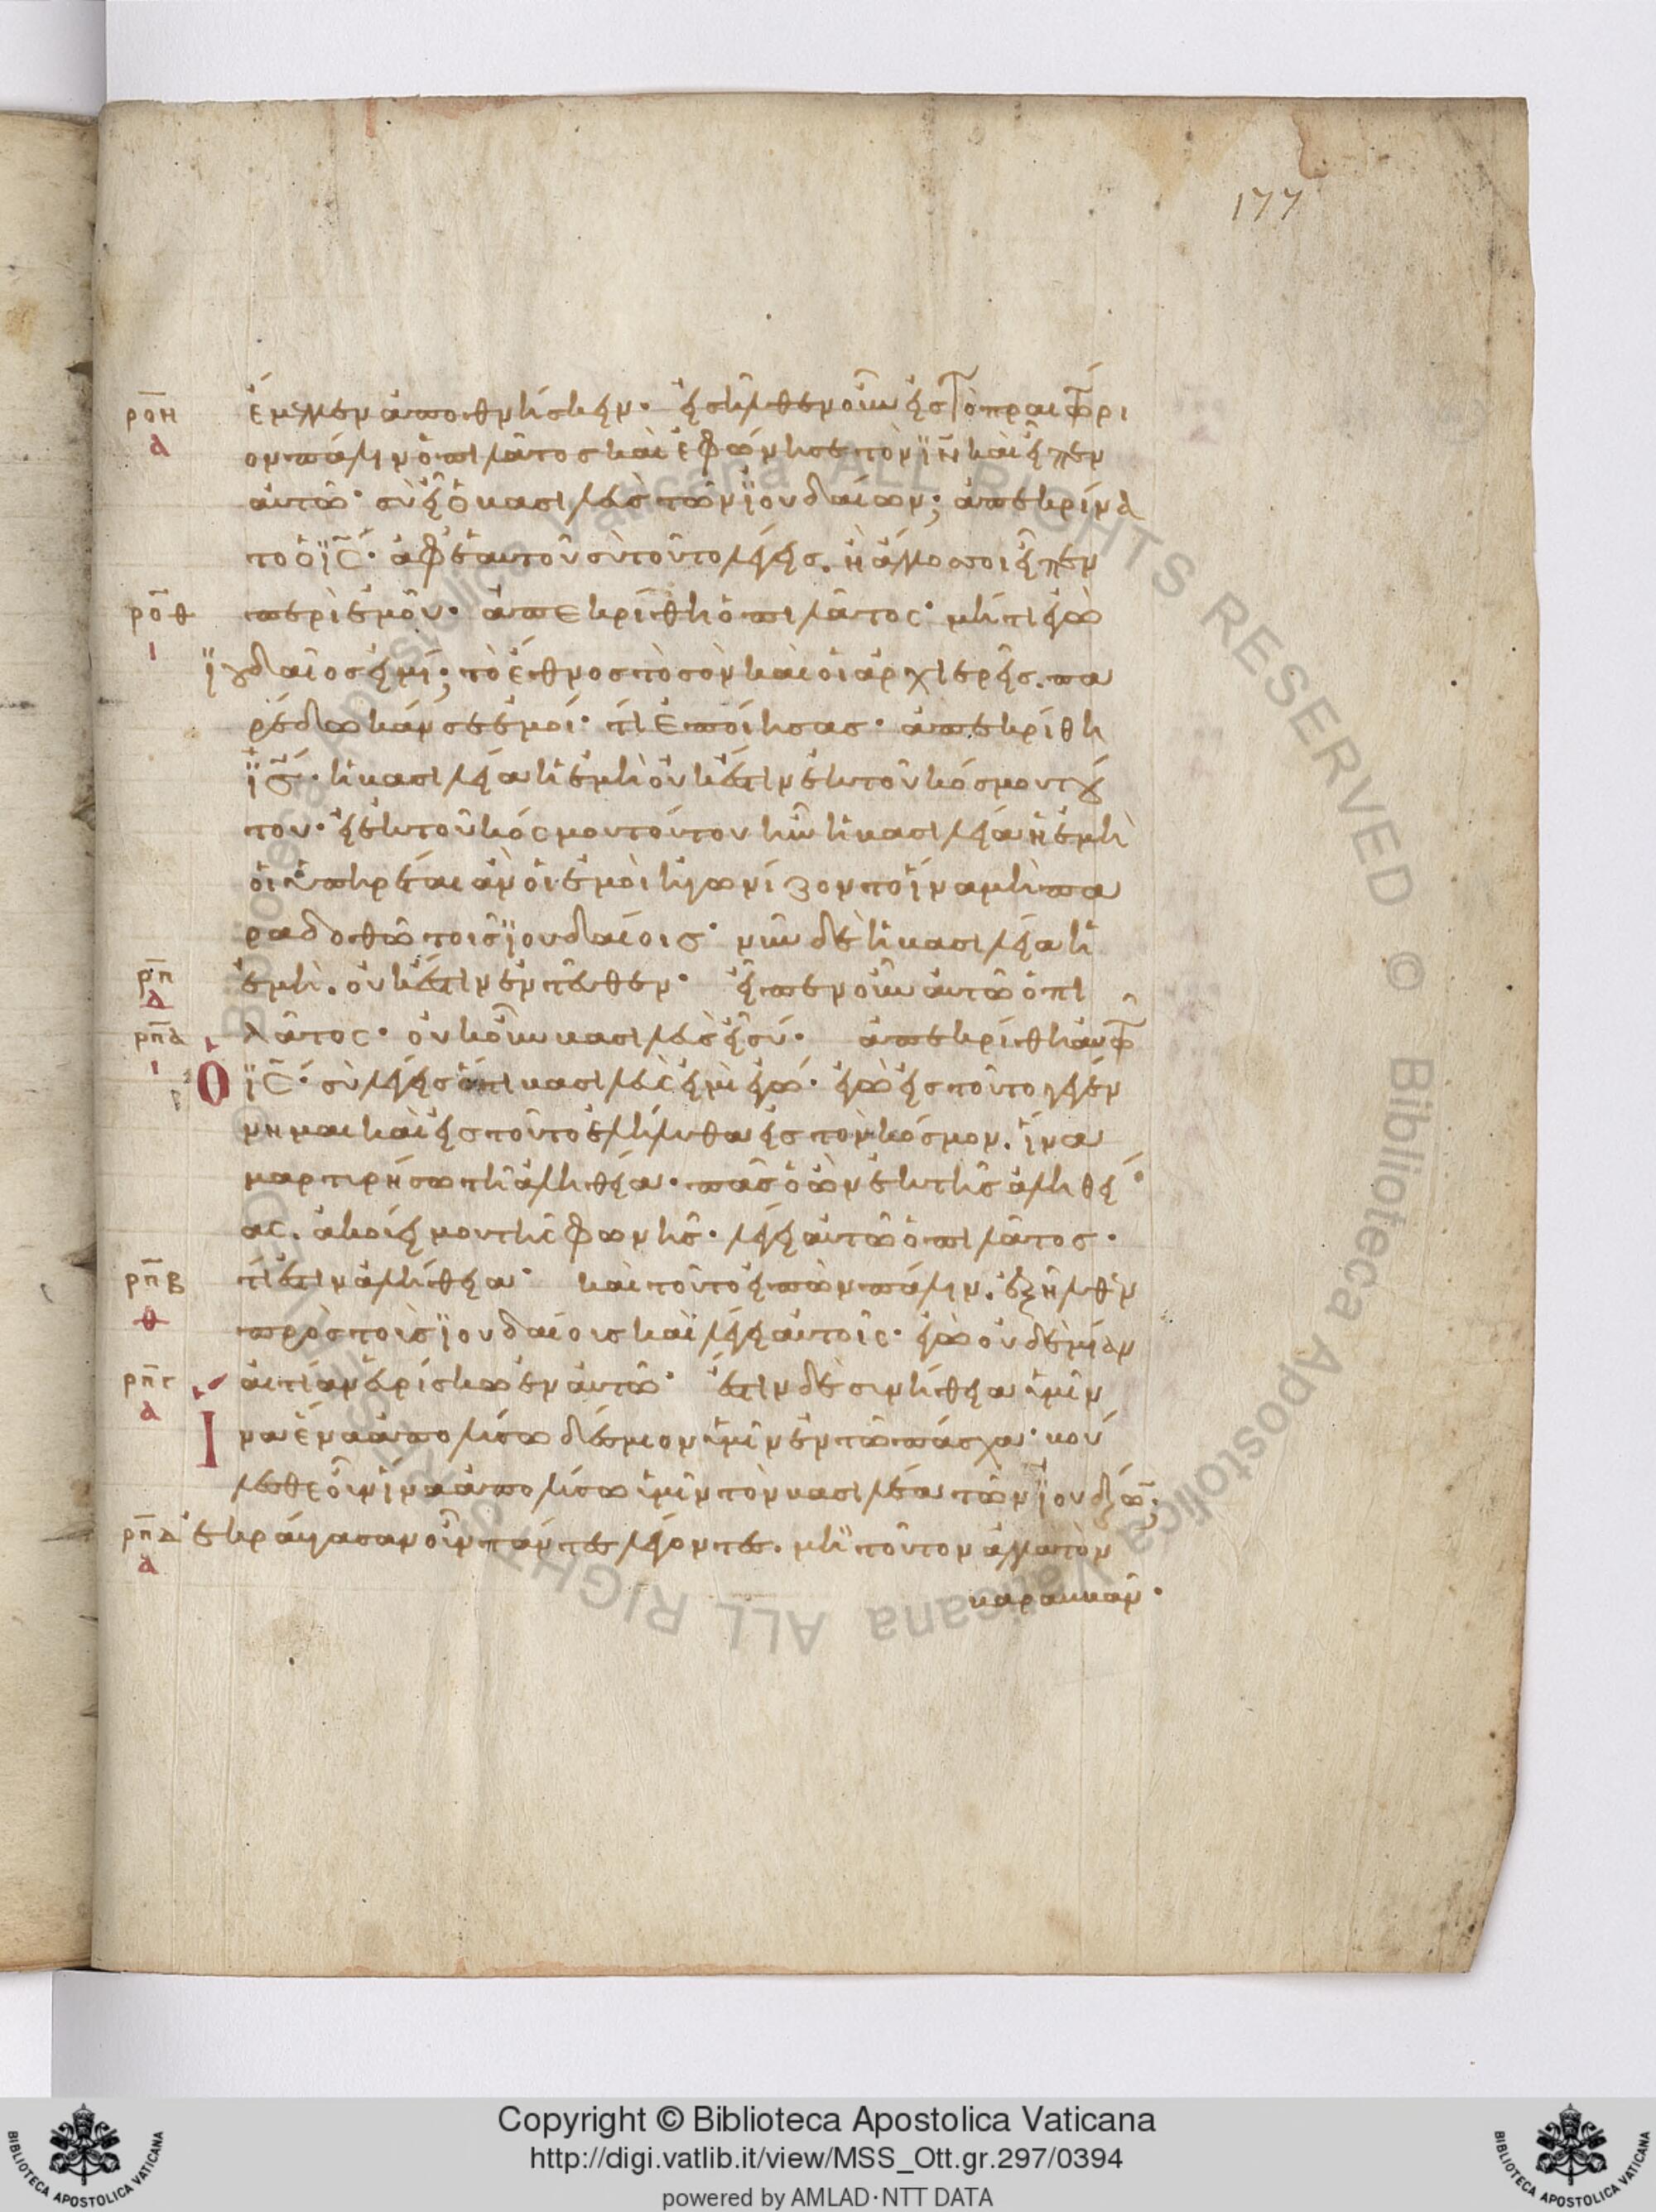 177
ροη ἔμελλεν ἀποθνήσκειν· εἰσῆλθεν οὖν εἰς τὸ πραιτώρι
α ον πάλιν ὁ πιλᾶτος καὶ ἐφώνησε τὸν ἰν καὶ εἶπεν
αὐτῶ· σὺ εἶ ὁ βασιλεὺς τῶν ἰουδαίων; ἀπεκρίνα
το ὁ ις· ἀφ ἑαυτοῦ σὺ τοῦτο λέγεις. ἢ ἄλλος σοι εἶπεν
ροθ περὶ ἐμοῦ· ἀπεκρίθη ὁ πιλᾶτος· μήτι ἐγὼ
ι ἰουδαῖος εἰμί; τὸ ἔθνος τὸ σὸν καὶ οἱ ἀρχιερεῖς. πα
ρέδωκάν σε ἐμοί· τί ἐποίησας· ἀπεκρίθη
ις· ἡ βασιλεία ἡ ἐμὴ οὐκ ἔστιν ἐκ τοῦ κόσμου τού
του· εἰ ἐκ τοῦ κόσμου τούτου ἦν ἡ βασιλεία ἡ ἐμὴ
οἱ ὑπηρέται ἂν οἱ ἐμοὶ ἠγωνίζοντο ἵνα μὴ πα
ραδοθῶ τοῖς ἰουδαίοις· νῦν δὲ ἡ βασιλεία ἡ
ρπ ἐμὴ. οὐκ ἔστιν ἐντεῦθεν· εἶπεν οὖν αὐτῶ ὁ πι
δ
ρπα λᾶτος· οὐκοῦν βασιλεὺς εἶ σύ· ἀπεκρίθη αὐτῶ
ι Ο ις· σὺ λέγεις ὅτι βασιλεύς εἰμὶ ἐγώ· ἐγὼ εἰς τοῦτο γεγέν
νημαι καὶ εἰς τοῦτο ἐλήλυθα εἰς τὸν κόσμον. ἵνα
μαρτυρήσω τῆ ἀληθεία· πᾶς ὁ ὢν ἐκ τῆς ἀληθεί
ας. ἀκούει μου τῆς φωνῆς· λέγει αὐτῶ ὁ πιλᾶτος·
ρπβ τί ἐστιν ἀλήθεια· καὶ τοῦτο εἰπὼν πάλιν. ἐξῆλθεν
θ πρὸς τοὺς ἰουδαίους καὶ λέγει αὐτοῖς· ἐγὼ οὐδεμίαν
ρπγ αἰτίαν εὑρίσκω ἐν αὐτῶ· ἔστιν δὲ συνήθεια ὑμῖν
α Ι να ἕνα ἀπολύσω δέσμιον ὑμῖν ἐν τῶ πάσχα· βού
λεσθε οὖν ἵνα ἀπολύσω ὑμῖν τὸν βασιλέα τῶν ἰουδαίων;
ρπδ ἐκραύγασαν οὖν πάντες λέγοντες. μὴ τοῦτον ἀλλὰ τὸν
α
βαραββᾶν·
Copyright © Biblioteca Apostolica Vaticana
http://digi.vatlib.it/view/MSS_Ott.gr.297/0394
powered by AMLAD·NTT DATA
BIBLIOTECA APOSTOLICA VATICANA
BIBLIOTECA APOSTOLICA VATICANA
© Biblioteca Apostolica Vaticana ALL RIGHTS RESERVED